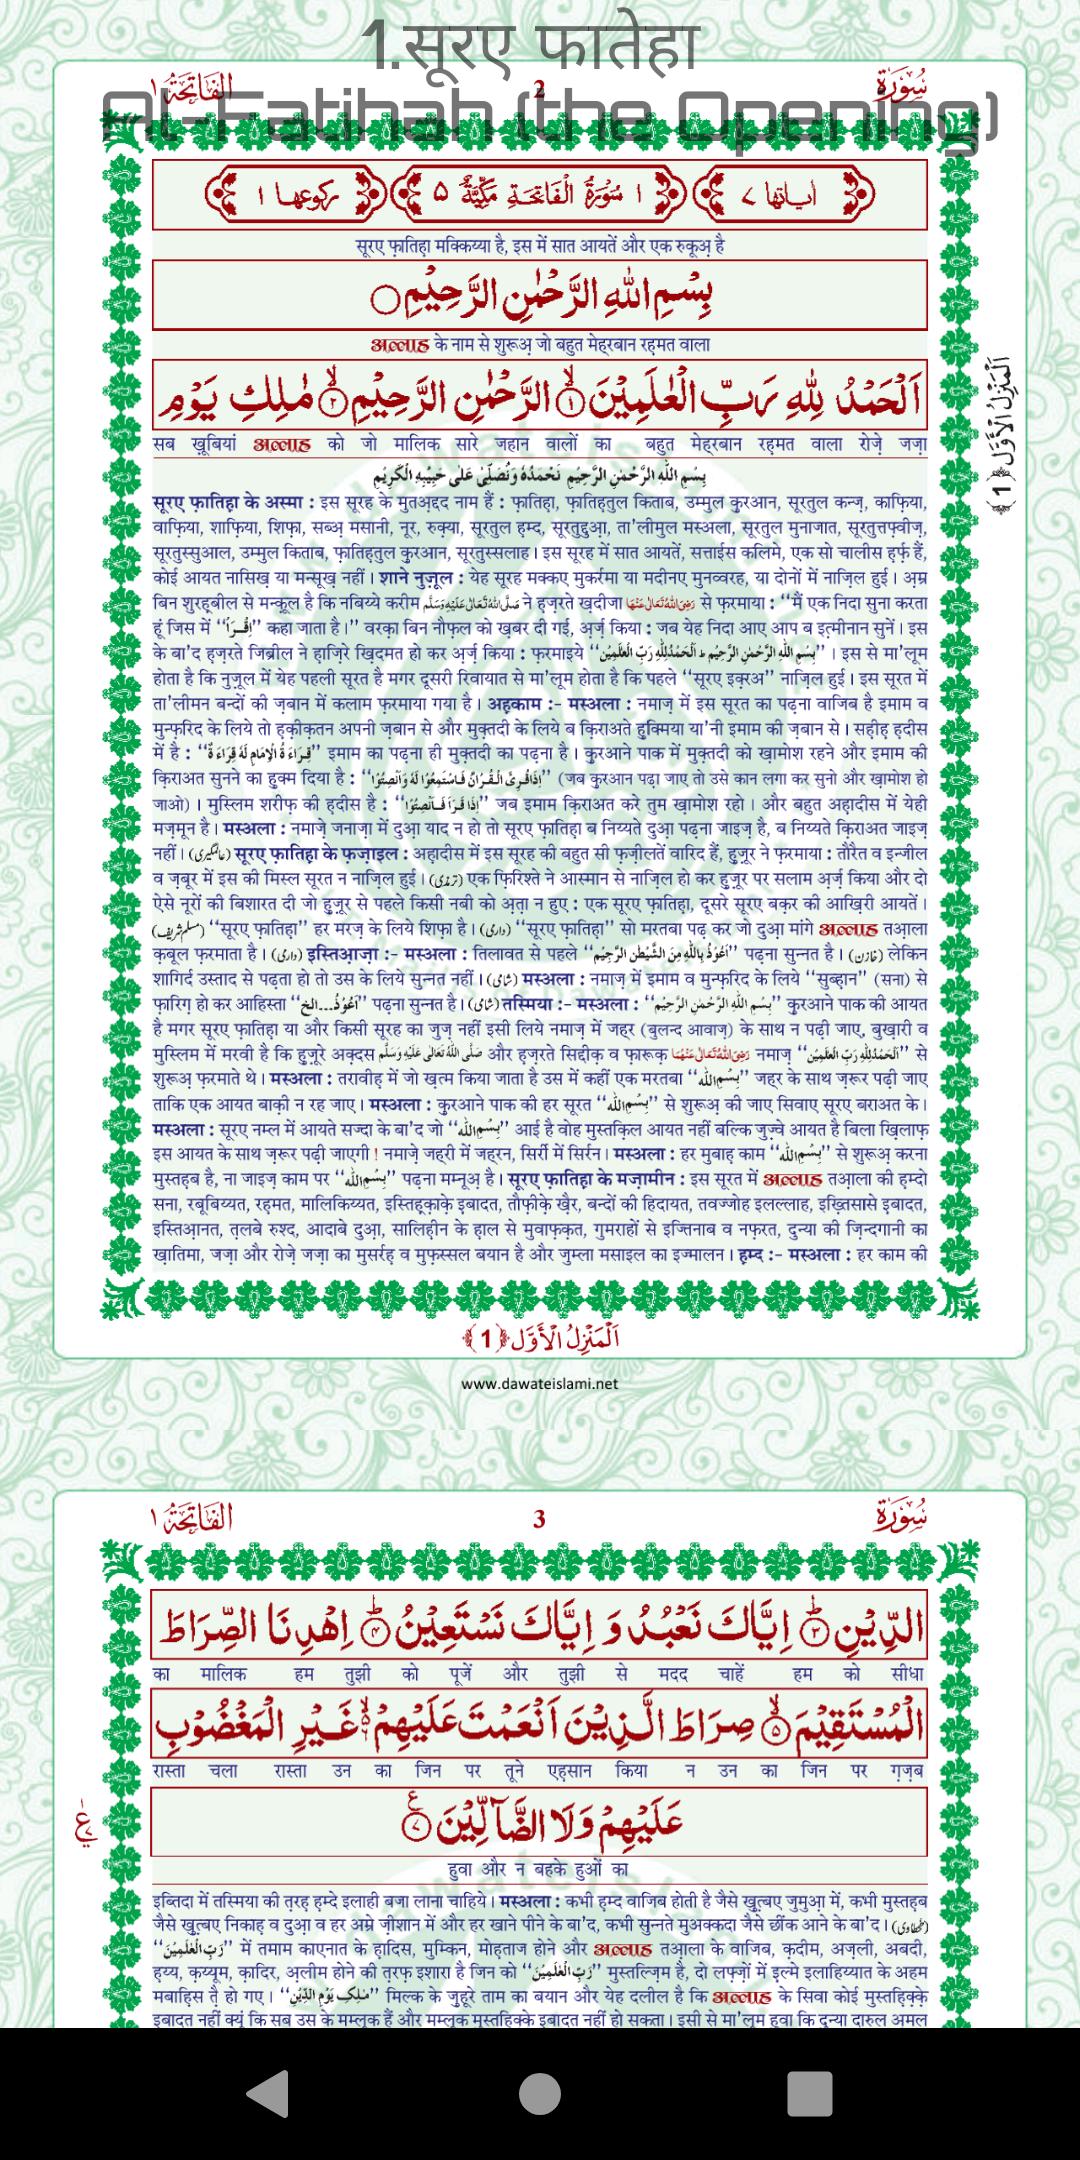 1.सूरए फातेहा
Al-Fatihah (the Opening)
سُوۡرَۃ 2 اَلۡفَاتِحَۃ ١
اٰیاتها ٧ ١ سُوۡرَۃُ الۡفَاتِحَۃِ مَکِّیَّۃٌ ٥ رکوعها ١
सूरए फ़ातिह़ा मक्किय्या है, इस में सात आयतें और एक रुकूअ़ है
بِسۡمِ اللّٰهِ الرَّحۡمٰنِ الرَّحِیۡمِ
अल्लाह के नाम से शुरूअ़ जो बहुत मेह्‌रबान रह़मत वाला
اَلۡحَمۡدُ لِلّٰهِ رَبِّ الۡعٰلَمِیۡنَ ۙ﴿١﴾ الرَّحۡمٰنِ الرَّحِیۡمِ ۙ﴿٢﴾ مٰلِکِ یَوۡمِ
सब ख़ूबियां अल्लाह को जो मालिक सारे जहान वालों का बहुत मेह्‌रबान रह़मत वाला रोज़े जज़ा
اَلۡمَنۡزِلُ الۡاَوَّل ﴿1﴾
بِسۡمِ اللّٰهِ الرَّحۡمٰنِ الرَّحِیۡمِ نَحۡمَدُهٗ وَنُصَلِّیۡ عَلٰی حَبِیۡبِهِ الۡکَرِیۡمِ
सूरए फ़ातिह़ा के अस्मा : इस सूरह के मुतअ़द्दद नाम हैं : फ़ातिह़ा, फ़ातिह़तुल किताब, उम्मुल क़ुरआन, सूरतुल कन्ज़, काफ़िया,
वाफ़िया, शाफ़िया, शिफ़ा, सब्अ़ मसानी, नूर, रुक़्या, सूरतुल ह़म्द, सूरतुद्दुआ़, ता'लीमुल मस्अला, सूरतुल मुनाजात, सूरतुत्तफ़्वीज़,
सूरतुस्सुआल, उम्मुल किताब, फ़ातिह़तुल क़ुरआन, सूरतुस्सलाह। इस सूरह में सात आयतें, सत्ताईस कलिमे, एक सो चालीस ह़र्फ़ हैं,
कोई आयत नासिख़ या मन्सूख़ नहीं। शाने नुज़ूल : येह सूरह मक्कए मुकर्रमा या मदीनए मुनव्वरह, या दोनों में नाज़िल हुई। अ़म्र
बिन शुरह़बील से मन्क़ूल है कि नबिय्ये करीम صَلَّی اللهُ تَعَالٰی عَلَیۡهِ وَسَلَّم ने ह़ज़रते ख़दीजा رَضِیَ اللهُ تَعَالٰی عَنۡهَا से फ़रमाया : "मैं एक निदा सुना करता
हूं जिस में "اِقۡرَأ" कहा जाता है।" वरक़ा बिन नौफ़ल को ख़बर दी गई, अ़र्ज़ किया : जब येह निदा आए आप ब इत़्मीनान सुनें। इस
के बा'द ह़ज़रते जिब्रील ने ह़ाज़िरे ख़िदमत हो कर अ़र्ज़ किया : फ़रमाइये "بِسۡمِ اللّٰهِ الرَّحۡمٰنِ الرَّحِیۡمِ ط اَلۡحَمۡدُلِلّٰهِ رَبِّ الۡعٰلَمِیۡنَ"। इस से मा'लूम
होता है कि नुज़ूल में येह पहली सूरत है मगर दूसरी रिवायत से मा'लूम होता है कि पहले "सूरए इक़रअ" नाज़िल हुई। इस सूरत में
ता'लीमन बन्दों की ज़बान में कलाम फ़रमाया गया है। अह़काम :- मस्अला : नमाज़ में इस सूरत का पढ़ना वाजिब है इमाम व
मुन्फ़रिद के लिये तो ह़क़ीक़तन अपनी ज़बान से और मुक़्तदी के लिये ब क़िराअते ह़ुक्मिया या'नी इमाम की ज़बान से। सह़ीह़ ह़दीस
में है : "قِرَاءَۃُ الۡاِمَامِ لَهٗ قِرَاءَۃٌ" इमाम का पढ़ना ही मुक़्तदी का पढ़ना है। क़ुरआने पाक में मुक़्तदी को ख़ामोश रहने और इमाम की
क़िराअत सुनने का हुक्म दिया है : "اِذَا قُرِئَ الۡقُرۡاٰنُ فَاسۡتَمِعُوۡا لَهٗ وَاَنۡصِتُوۡا" (जब क़ुरआन पढ़ा जाए तो उसे कान लगा कर सुनो और ख़ामोश हो
जाओ)। मुस्लिम शरीफ़ की ह़दीस है : "اِذَا قَرَأَ فَاَنۡصِتُوۡا" जब इमाम क़िराअत करे तुम ख़ामोश रहो। और बहुत अह़ादीस में येही
मज़्मून है। मस्अला : नमाज़े जनाज़ा में दुआ़ याद न हो तो सूरए फ़ातिह़ा ब निय्यते दुआ़ पढ़ना जाइज़ है, ब निय्यते क़िराअत जाइज़
नहीं। (عالمگیری) सूरए फ़ातिह़ा के फ़ज़ाइल : अह़ादीस में इस सूरह की बहुत सी फ़ज़ीलतें वारिद हैं, हुज़ूर ने फ़रमाया : तौरैत व इन्जील
व ज़बूर में इस की मिस्ल सूरत न नाज़िल हुई। (ترمذی) एक फ़िरिश्ते ने आस्मान से नाज़िल हो कर हुज़ूर पर सलाम अ़र्ज़ किया और दो
ऐसे नूरों की बिशारत दी जो हुज़ूर से पहले किसी नबी को अ़त़ा न हुए : एक सूरए फ़ातिह़ा, दूसरे सूरए बक़र की आख़िरी आयतें।
(مسلم شریف) "सूरए फ़ातिह़ा" हर मरज़ के लिये शिफ़ा है। (دارمی) "सूरए फ़ातिह़ा" सो मरतबा पढ़ कर जो दुआ़ मांगे अल्लाह तआ़ला
क़बूल फ़रमाता है। (دارمی) इस्तिआ़ज़ा :- मस्अला : तिलावत से पहले "اَعُوۡذُ بِاللّٰهِ مِنَ الشَّیۡطٰنِ الرَّجِیۡمِ" पढ़ना सुन्नत है। (خازن) लेकिन
शागिर्द उस्ताद से पढ़ता हो तो उस के लिये सुन्नत नहीं। (شامی) मस्अला : नमाज़ में इमाम व मुन्फ़रिद के लिये "सुब्ह़ान" (सना) से
फ़ारिग़ हो कर आहिस्ता "اَعُوۡذُ...الخ" पढ़ना सुन्नत है। (شامی) तस्मिया :- मस्अला : "بِسۡمِ اللّٰهِ الرَّحۡمٰنِ الرَّحِیۡمِ" क़ुरआने पाक की आयत
है मगर सूरए फ़ातिह़ा या और किसी सूरह का जुज़ नहीं इसी लिये नमाज़ में जहर (बुलन्द आवाज़) के साथ न पढ़ी जाए, बुख़ारी व
मुस्लिम में मरवी है कि हुज़ूरे अक़्दस صَلَّی اللهُ تَعَالٰی عَلَیۡهِ وَسَلَّم और ह़ज़रते सिद्दीक़ व फ़ारूक़ رَضِیَ اللهُ تَعَالٰی عَنۡهُمَا नमाज़ "اَلۡحَمۡدُلِلّٰهِ رَبِّ الۡعٰلَمِیۡنَ" से
शुरूअ़ फ़रमाते थे। मस्अला : तरावीह़ में जो ख़त्म किया जाता है उस में कहीं एक मरतबा "بِسۡمِ اللّٰه" जहर के साथ ज़रूर पढ़ी जाए
ताकि एक आयत बाक़ी न रह जाए। मस्अला : क़ुरआने पाक की हर सूरत "بِسۡمِ اللّٰه" से शुरूअ़ की जाए सिवाए सूरए बराअत के।
मस्अला : सूरए नम्ल में आयते सज्दा के बा'द जो "بِسۡمِ اللّٰه" आई है वोह मुस्तक़िल आयत नहीं बल्कि जुज़्वे आयत है बिला ख़िलाफ़
इस आयत के साथ ज़रूर पढ़ी जाएगी ! नमाज़े जहरी में जहरन, सिर्री में सिर्रन। मस्अला : हर मुबाह़ काम "بِسۡمِ اللّٰه" से शुरूअ़ करना
मुस्तह़ब है, ना जाइज़ काम पर "بِسۡمِ اللّٰه" पढ़ना मम्नूअ़ है। सूरए फ़ातिह़ा के मज़ामीन : इस सूरत में अल्लाह तआ़ला की ह़म्दो
सना, रबूबिय्यत, रह़मत, मालिकिय्यत, इस्तिह़क़ाक़े इबादत, तौफ़ीक़े ख़ैर, बन्दों की हिदायत, तवज्जोह इलल्लाह, इख़्तिसासे इबादत,
इस्तिआ़नत, त़लबे रुश्द, आदाबे दुआ़, सालिह़ीन के ह़ाल से मुवाफ़क़त, गुमराहों से इज्तिनाब व नफ़रत, दुन्या की ज़िन्दगानी का
ख़ातिमा, जज़ा और रोज़े जज़ा का मुसर्रह़ व मुफ़स्सल बयान है और जुम्ला मसाइल का इज्मालन। ह़म्द :- मस्अला : हर काम की
اَلۡمَنۡزِلُ الۡاَوَّل ﴿1﴾
www.dawateislami.net
سُوۡرَۃ 3 اَلۡفَاتِحَۃ ١
الدِّیۡنِ ؕ﴿٣﴾ اِیَّاکَ نَعۡبُدُ وَ اِیَّاکَ نَسۡتَعِیۡنُ ؕ﴿٤﴾ اِهۡدِ نَا الصِّرَاطَ
का मालिक हम तुझी को पूजें और तुझी से मदद चाहें हम को सीधा
الۡمُسۡتَقِیۡمَ ۙ﴿٥﴾ صِرَاطَ الَّذِیۡنَ اَنۡعَمۡتَ عَلَیۡهِمۡ ۙ۬ غَیۡرِ الۡمَغۡضُوۡبِ
रास्ता चला रास्ता उन का जिन पर तूने एह़सान किया न उन का जिन पर ग़ज़ब
عَلَیۡهِمۡ وَلَا الضَّآلِّیۡنَ ﴿٧﴾
हुवा और न बहके हुओं का
इब्तिदा में तस्मिया की त़रह़ ह़म्दे इलाही बजा लाना चाहिये। मस्अला : कभी ह़म्द वाजिब होती है जैसे ख़ुत़्बए जुमुआ़ में, कभी मुस्तह़ब
जैसे ख़ुत़्बए निकाह़ व दुआ़ व हर अम्रे ज़ीशान में और हर खाने पीने के बा'द, कभी सुन्नते मुअक्कदा जैसे छींक आने के बा'द। (طحطاوی)
"رَبِّ الۡعٰلَمِیۡنَ" में तमाम काएनात के ह़ादिस, मुम्किन, मोह़ताज होने और अल्लाह तआ़ला के वाजिब, क़दीम, अज़ली, अबदी,
ह़य्य, क़य्यूम, क़ादिर, अ़लीम होने की त़रफ़ इशारा है जिन को "رَبِّ الۡعٰلَمِیۡنَ" मुस्तल्ज़िम है, दो लफ़्ज़ों में इल्मे इलाहिय्यात के अहम
मबाह़िस त़ै हो गए। "مٰلِکِ یَوۡمِ الدِّیۡنِ" मिल्क के ज़ुहूरे ताम का बयान और येह दलील है कि अल्लाह के सिवा कोई मुस्तह़िक़्क़े
इबादत नहीं क्यूं कि सब उस के मम्लूक हैं और मम्लूक मुस्तह़िक़्क़े इबादत नहीं हो सकता। इसी से मा'लूम हुवा कि दुन्या दारुल अ़मल